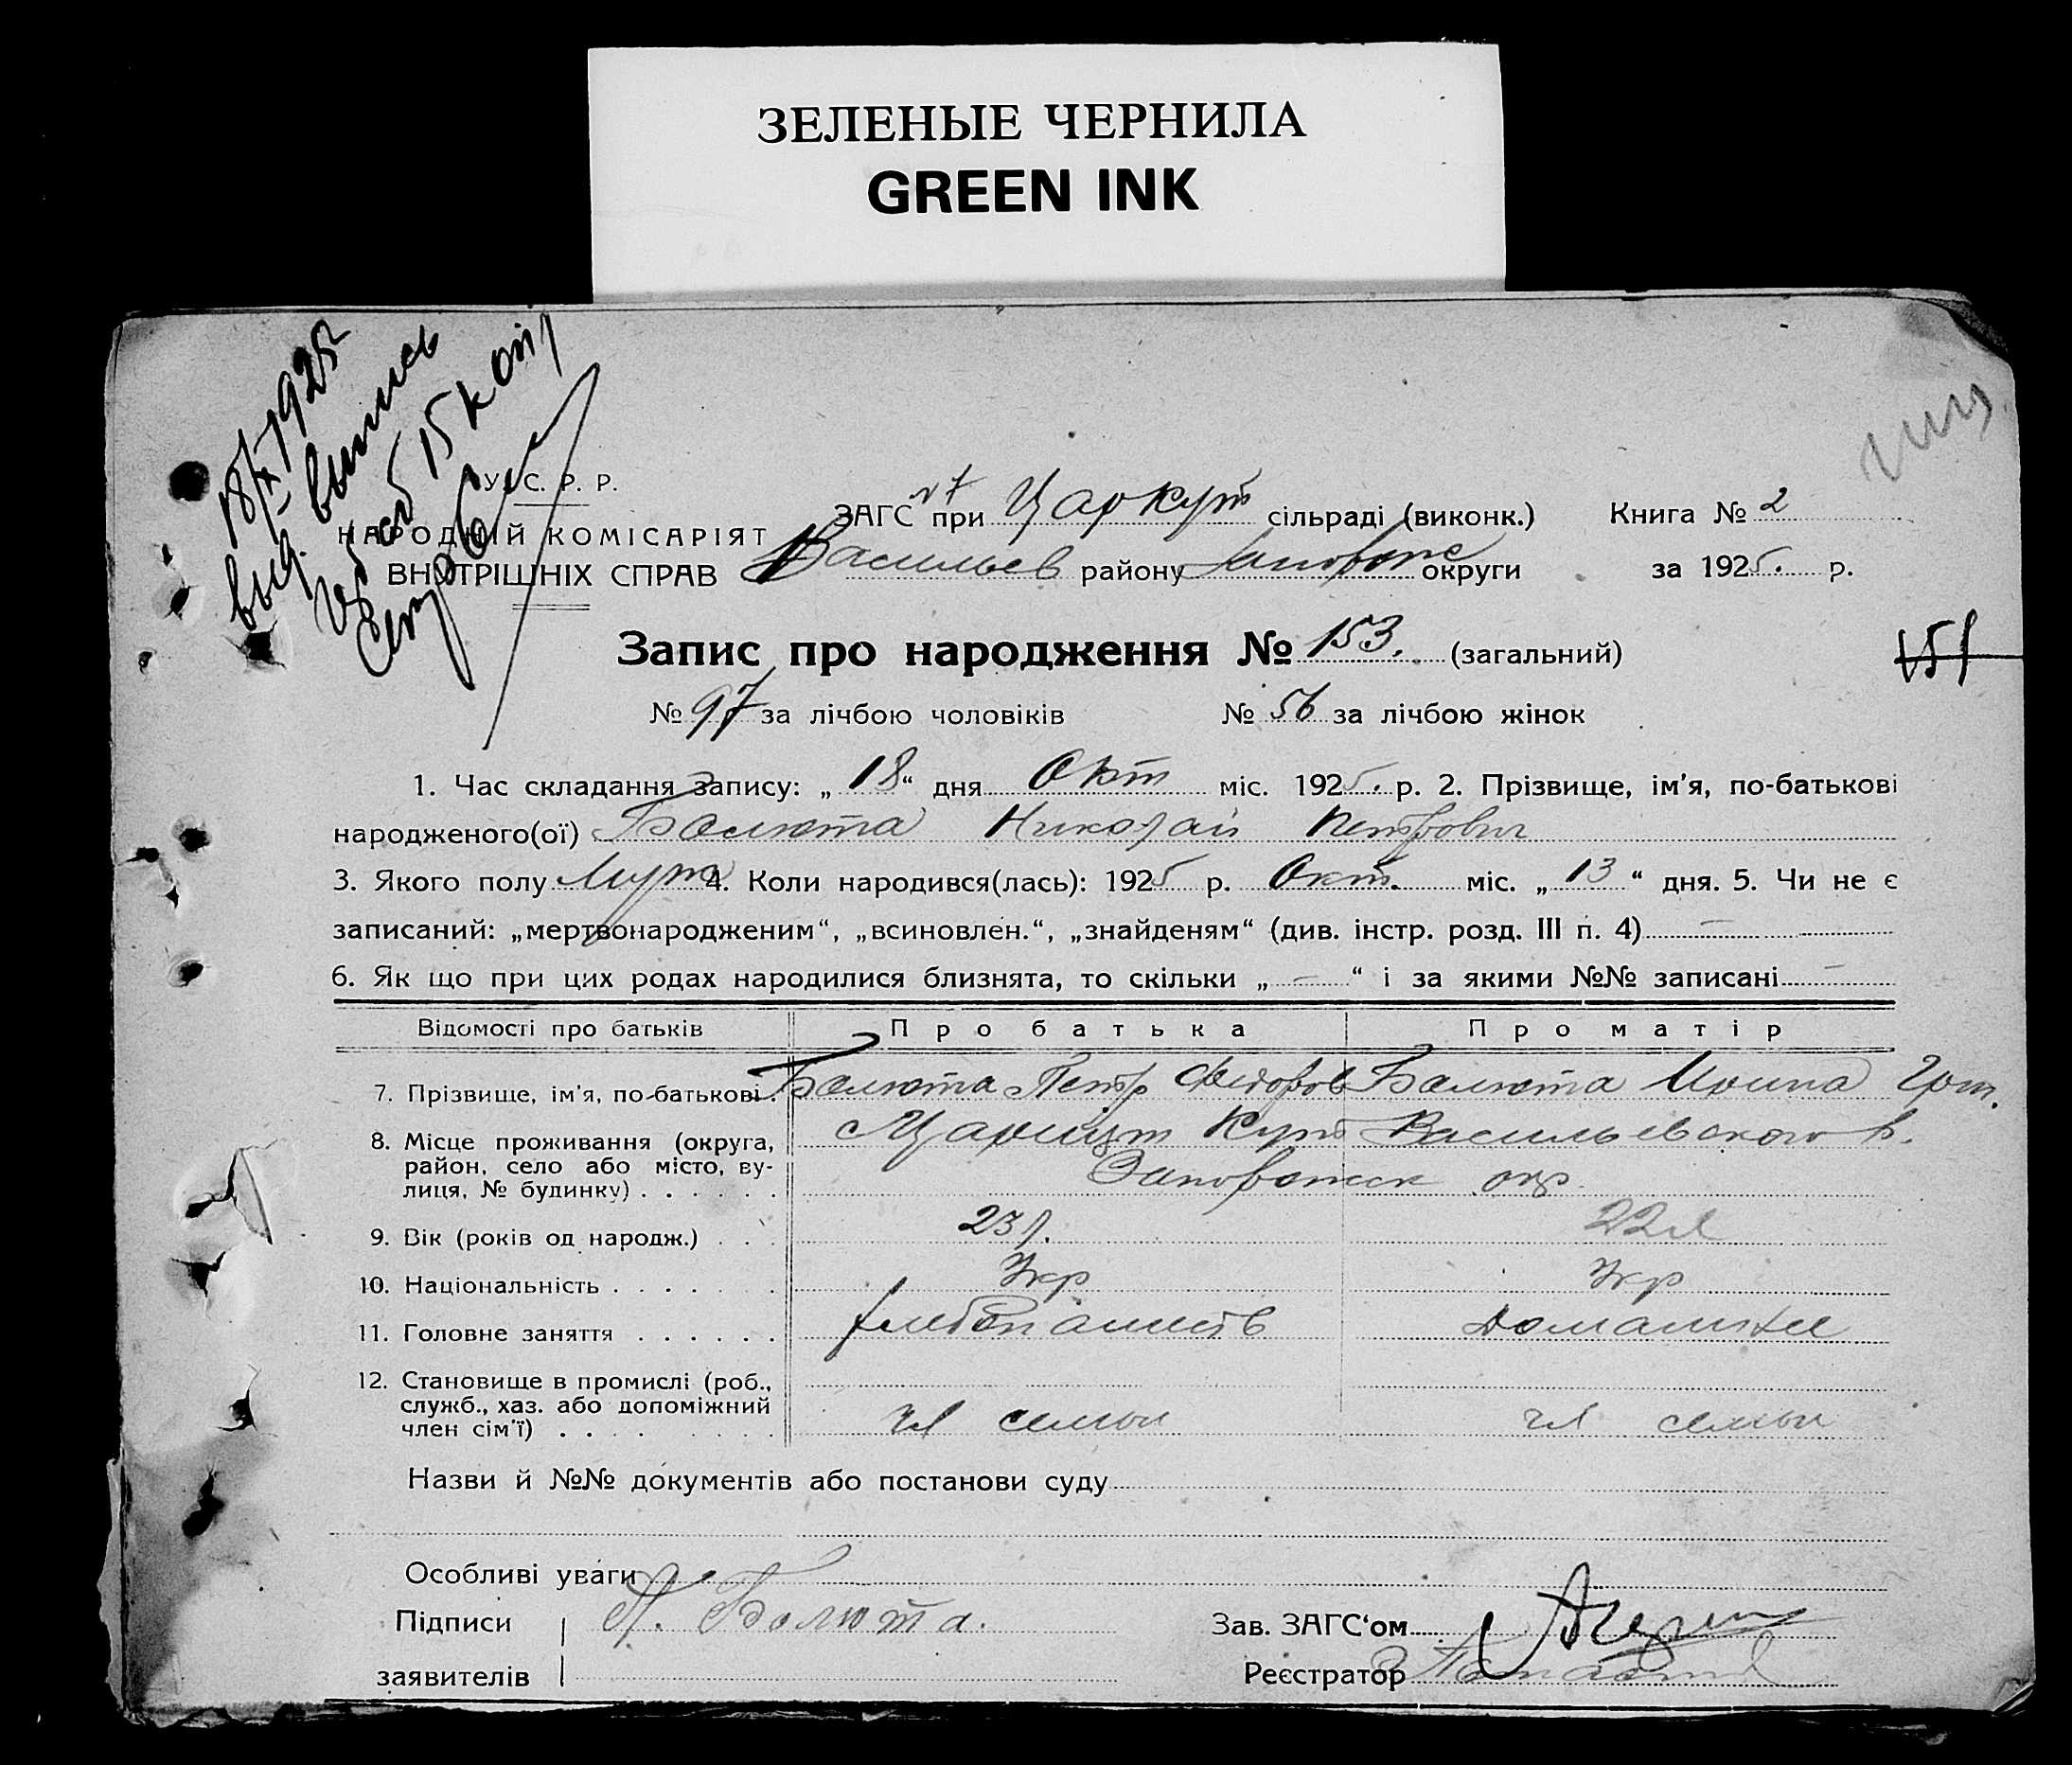 ЗЕЛЕНЫЕ ЧЕРНИЛА
GREEN INK
18/X 1925
выд. выпись
15 коп
У. С. Р. Р.
НАРОДНІЙ КОМІСАРІЯТ
ВНУТРІШНІХ СПРАВ
ЗАГС при Царкут сільраді (виконк.) Книга № 2
Васильев району Запорож округи за 1925. р.
Запис про народження № 153. (загальний)
151
№ 97 за лічбою чоловіків № 56 за лічбою жінок
1. Час складання запису: „ 18 “ дня Окт міс. 1925. р. 2. Прізвище, ім'я, по-батькові
народженого(ої) Балюта Николай Петрович
3. Якого полу Муж 4. Коли народився(лась): 1925 р. Окт. міс. „ 13 “ дня. 5. Чи не є
записаний: „мертвонародженим“, „всиновлен.“, „знайденям“ (див. інстр. розд. III п. 4) —
6. Як що при цих родах народилися близнята, то скільки „ — “ і за якими №№ записані —
Відомості про батьків Про батька Про матір
7. Прізвище, ім'я, по-батькові. Балюта Петр Федоров Балюта Ирина Григ.
8. Місце проживання (округа, район, село або місто, вулиця, № будинку) . . . . . . Царицин Кут Васильевского р.
Запорожск окр.
9. Вік (років од народж.) . . . 23 г. 22 л
10. Національність . . . . . . . Укр Укр
11. Головне заняття . . . . . . хлебопашеств домашнее
12. Становище в промислі (роб.,
служб., хаз. або допоміжний
член сім'ї) . . . . . . . . чл семьи чл семьи
Назви й №№ документів або постанови суду
Особливі уваги
Підписи П. Балюта. Зав. ЗАГС‘ом
заявителів Реєстратор